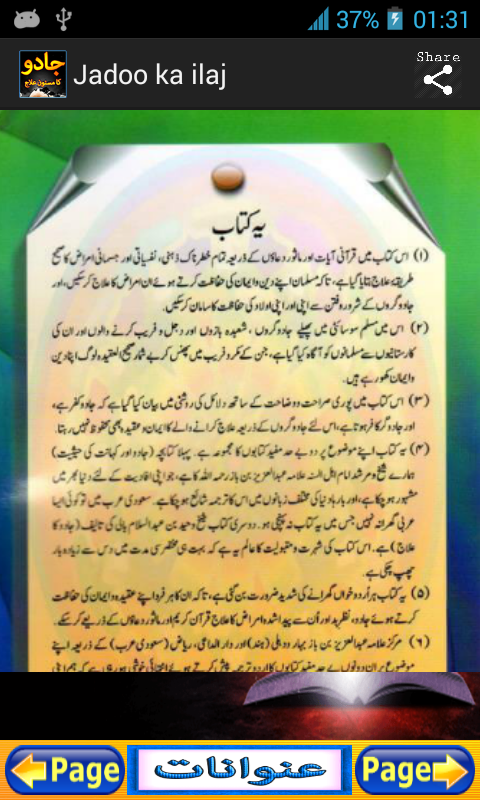 37% 01:31
جادو
کا مسنون علاج
Jadoo ka ilaj
Share
یہ کتاب
(۱) اس کتاب میں قرآنی آیات اور ماثور دعاؤں کے ذریعہ تمام خطرناک ذہنی، نفسیاتی اور جسمانی امراض کا صحیح
طریقہ علاج بتایا گیا ہے، تاکہ مسلمان اپنے دین وایمان کی حفاظت کرتے ہوئے ان امراض کا علاج کرسکیں، اور
جادوگروں کے شر ور وفتن سے اپنی اور اپنی اولاد کی حفاظت کا سامان کرسکیں۔
(۲) اس میں مسلم سوسائٹی میں پھیلے جادوگروں ، شعبدہ بازوں اور دجل و فریب کرنے والوں اور ان کی
کارستانیوں سے مسلمانوں کو آگاہ کیا گیا ہے، جن کے مکروفریب میں پھنس کر بے شمار صحیح العقیدہ لوگ اپنا دین
وایمان کھو رہے ہیں۔
(۳) اس کتاب میں پوری صراحت ووضاحت کے ساتھ دلائل کی روشنی میں بیان کیا گیا ہے کہ جادو کفر ہے،
اور جادوگر کافر ہوتا ہے، اس لئے جادوگروں کے ذریعہ علاج کرانے والے کا ایمان وعقیدہ بھی محفوظ نہیں رہتا۔
(۴) یہ کتاب اپنے موضوع پر دو بے حد مفید کتابوں کا مجموعہ ہے۔ پہلا کتابچہ (جادو اور کہانت کی حیثیت)
ہمارے شیخ ومرشد امام اہل السنہ علامہ عبدالعزیز بن باز رحمہ اللہ کا ہے، جو اپنی افادیت کے لئے دنیا بھر میں
مشہور ہوچکا ہے، اور بارہا دنیا کی مختلف زبانوں میں اس کا ترجمہ شائع ہوچکا ہے۔ سعودی عرب میں تو کوئی ایسا
عربی گھرانہ نہیں جس میں یہ کتاب نہ پہنچی ہو۔ دوسری کتاب شیخ وحید بن عبدالسلام بالی کی تالیف (جادو کا
علاج) ہے۔ اس کتاب کی شہرت و مقبولیت کا عالم یہ ہے کہ بہت ہی مختصر سی مدت میں دس سے زیادہ بار
چھپ چکی ہے۔
(۵) یہ کتاب ہر اُردو خواں گھرانے کی شدید ضرورت بن گئی ہے، تاکہ ان کا ہر فرد اپنے عقیدہ وایمان کی حفاظت
کرتے ہوئے جادو، نظر بد اور اُن سے پیدا شدہ امراض کا علاج قرآن کریم اور ماثور دعاؤں کے ذریعے کرسکے۔
(۶) مرکز علامہ عبدالعزیز بن باز بہار ودہلی (ہند) اور دار الداعی، ریاض (سعودی عرب) کے ذریعہ اپنے
موضوع پر ان دونوں بے حد مفید کتابوں کا اردو ترجمہ پیش کرتے ہوئے انتہائی خوشی ہو رہی ہے کہ ہم اپنی
Page عنوانات Page